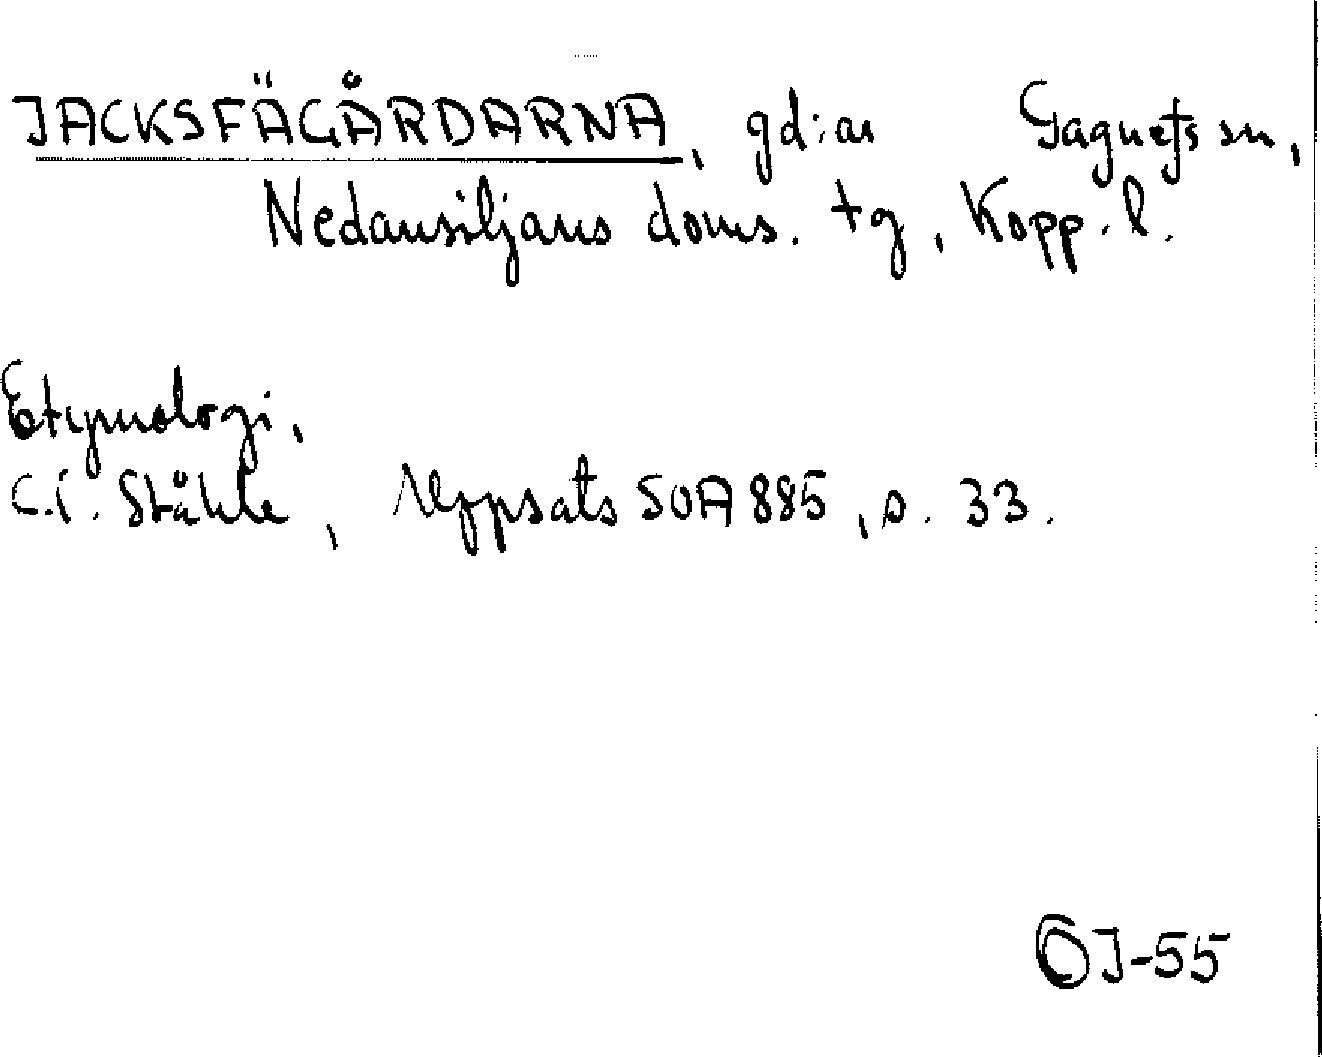 JACKSFÄGÅRDARNA, gd:ar Gagnefs sn,
Nedansiljans doms. tg, Kopp. l.
Etymologi,
C.I. Ståhle, Uppsats SOA 885, s. 33.
OJ-55